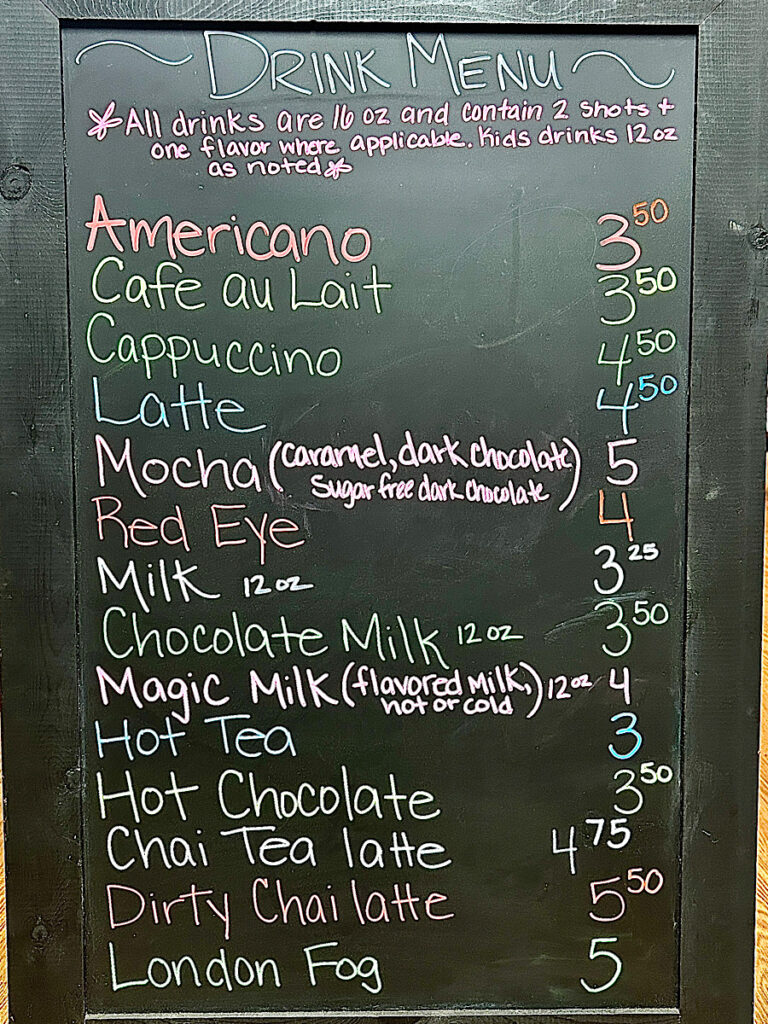 DRINK MENU
*All drinks are 16 oz and contain 2 shots +
one flavor where applicable. Kids drinks 12 oz
as noted*
Americano 3 50
Cafe au Lait 3 50
Cappuccino 4 50
Latte 4 50
Mocha (caramel, dark chocolate 5
Sugar free dark chocolate)
Red Eye 4
Milk 12 oz 3 25
Chocolate Milk 12 oz 3 50
Magic Milk (flavored milk, 12 oz 4
hot or cold)
Hot Tea 3
Hot Chocolate 3 50
Chai Tea latte 4 75
Dirty Chai latte 5 50
London Fog 5